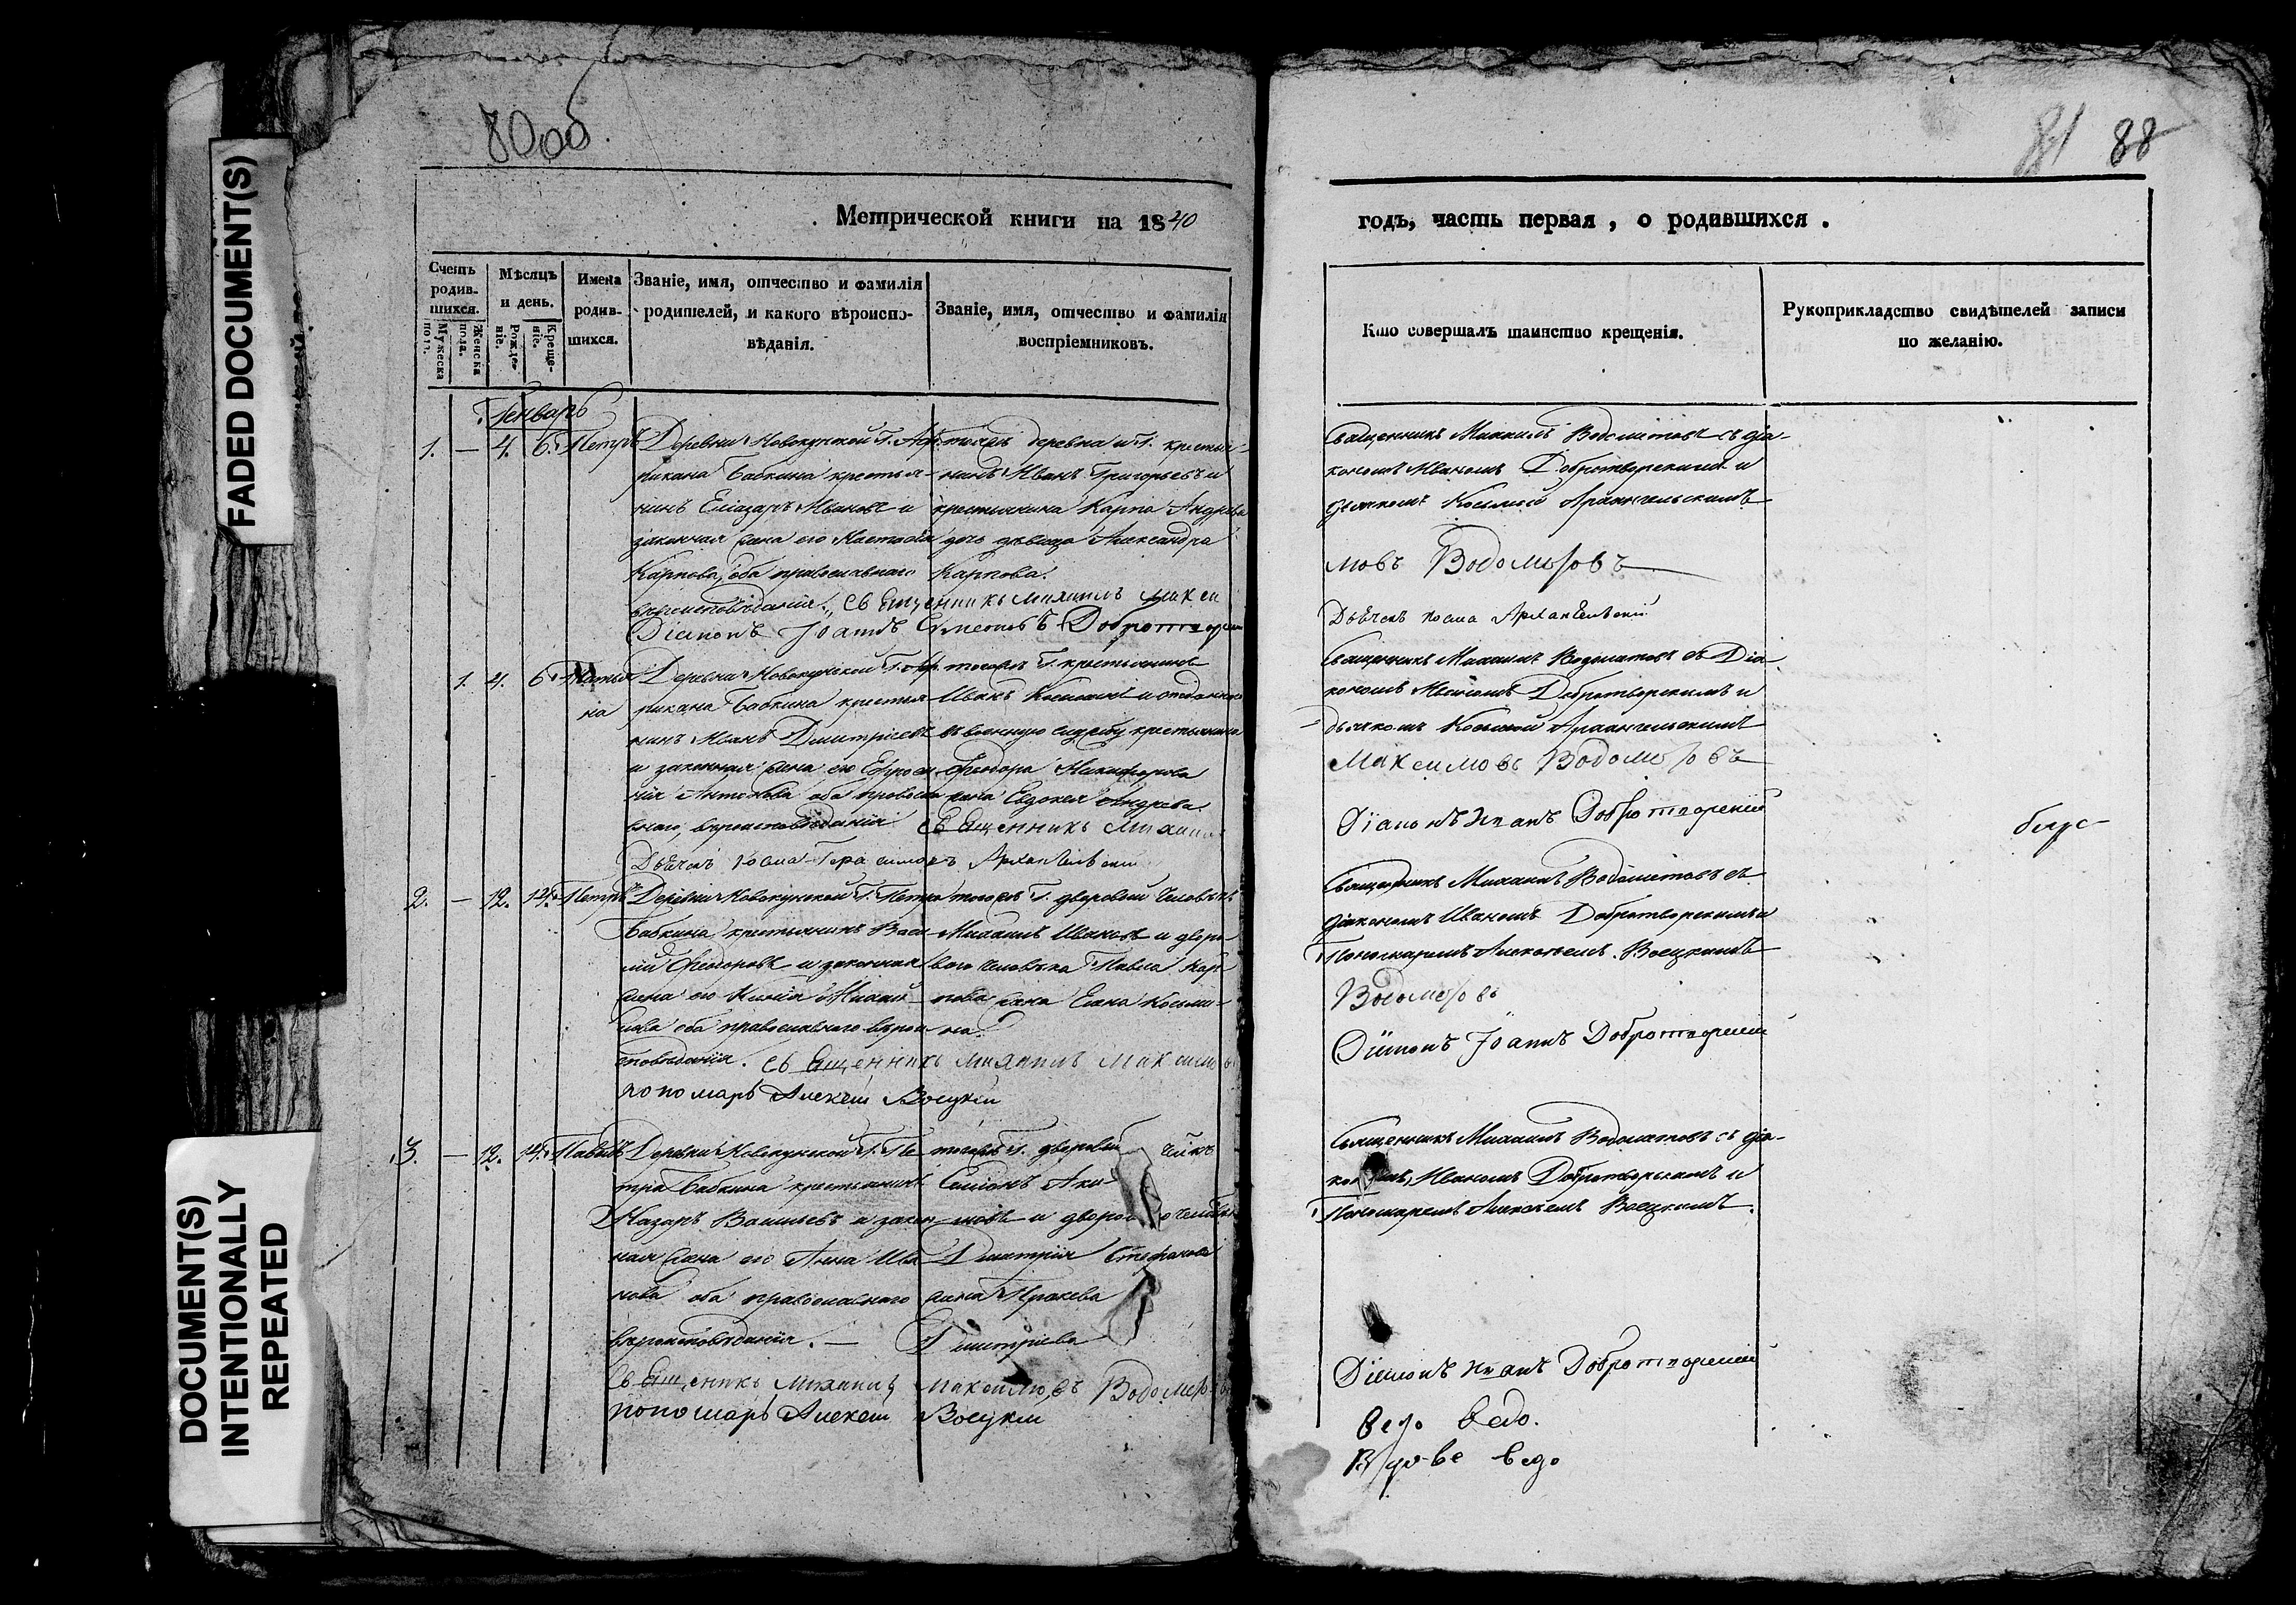 80об.
81 88
FADED DOCUMENT(S)
DOCUMENT(S)
INTENTIONALLY
REPEATED
Метрической книги на 1840
годъ, часть первая, о родившихся.
Счетъ родив-шихся.
Мужеска пола.
Женска пола.
Мѣсяцъ и день.
Рожде-ніе.
Креще-ніе.
Имена родив-шихся.
Званіе, имя, отчество и фамилія
родителей, и какого вѣроиспо-
вѣданія.
Званіе, имя, отчество и фамилія
воспріемниковъ.
Кто совершалъ таинство крещенія.
Рукоприкладство свидѣтелей записи
по желанію.
Генварь
1. — 4. 6. Петръ
Деревни Новокунской Г. Аф-
рикана Бабкина крестья-
нинъ Еліазаръ Ивановъ и
законная жена его Настасья
Карпова, оба православнаго
вѣроисповѣданія. Священникъ Михаилъ Макси
Діаконъ Іоаннъ Добротворс
тойжъ деревни и Г. крестья-
нинъ Иванъ Григорьевъ и
крестьянина Карпа Андреева
дочь дѣвица Александра
Карпова.
Священникъ Михаилъ Водомѣтовъ съ діа-
кономъ Иваномъ Добротворскимъ и
дьячкомъ Космою Архангельскимъ
мовъ Водометовъ
Дьячокъ Косма Архангельский
1. 4. 6. Татья
на
Деревни Новокунской Г. Аф-
рикана Бабкина крестья-
нинъ Иванъ Дмитріевъ
и законная жена его Ефроси
нія Антонова оба правосла
внаго вѣроисповѣданія Священникъ Михаилъ
Дьячокъ Косма Архангельски
тогожъ Г. крестьянинъ
Иванъ Космовъ и отданнаго
въ военную службу крестьянина
Феодора Никифорова
жена Евдокея Андреева.
Священникъ Михаилъ Водометовъ съ Діа-
кономъ Иваномъ Добротворскимъ и
дьячкомъ Космой Архангельскимъ
Максимовъ Водометовъ
Діаконъ Иванъ Добротворскій
2. — 12. 14. Петръ
Деревни Новокунской Г. Петра
Бабкина крестьянинъ Васи-
лій Феодоровъ и законная
жена его Михай
лова оба православнаго вѣрои-
сповѣданія. Священникъ Михаилъ Максимовъ
пономарь Алексей Воецкій
тогожъ Г. дворовой человѣкъ
Михаилъ Ивановъ и дворо-
ваго человѣка Павла Кар
пова жена Елена Косми-
на.
Священникъ Михаилъ Водометовъ съ
діакономъ Иваномъ Добротворскимъ и
Пономаремъ Алексеемъ Воецкимъ
Водометовъ
Діаконъ Іоаннъ Добротворскій
3. — 12. 14. Павелъ
Деревни Новокунской Г. Пе
тра Бабкина крестьянинъ
Назаръ Васильевъ и закон
ная жена его Анна Ива
нова оба православнаго
вѣроисповѣданія. —
Священникъ Михаилъ Максимовъ Водомет
пономарь Алексей Воецкій
тогожъ Г. дворовой
Семіонъ Аки-
мовъ и дворо
Дмитрія Стефанова
жена
Дмитріева
Священникъ Михаилъ Водометовъ съ діа-
кономъ Иваномъ Добротворскимъ и
Пономаремъ Алексеемъ Воецкимъ.
Діаконъ Иванъ Добротворскій